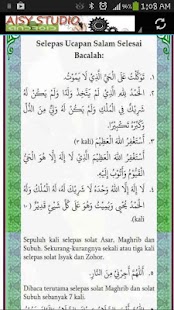 1:08 AM
AISY STUDIO
Selepas Ucapan Salam Selesai
Bacalah:
1. تَوَكَّلْتُ عَلَى الْحَيِّ الَّذِيْ لَا يَمُوْتُ.
2. اَلْحَمْدُ لِلَّهِ الَّذِيْ لَمْ يَتَّخِذْ وَلَدًا وَلَمْ يَكُنْ لَهُ
شَرِيْكٌ فِي الْمُلْكِ وَلَمْ يَكُنْ لَهُ وَلِيٌّ مِنَ الذُّلِّ
وَكَبِّرْهُ تَكْبِيْرًا.
3. أَسْتَغْفِرُ اللهَ الْعَظِيْمَ (2 kali)
أَسْتَغْفِرُ اللهَ الْعَظِيْمَ الَّذِيْ لَا إِلَهَ إِلَّا هُوَ الْحَيُّ
الْقَيُّوْمُ وَأَتُوْبُ إِلَيْهِ.
4. لَا إِلَهَ إِلَّا اللهُ وَحْدَهُ لَا شَرِيْكَ لَهُ، لَهُ الْمُلْكُ وَلَهُ
الْحَمْدُ يُحْيِيْ وَيُمِيْتُ وَهُوَ عَلَى كُلِّ شَيْءٍ قَدِيْرٌ
kali)
Sepuluh kali selepas solat Asar, Maghrib dan
Subuh. Sekurang-kurangnya 1 kali, tetapi sekali
sahaja selepas solat Isyak dan Zohor.
5. اَللَّهُمَّ أَجِرْنِيْ مِنَ النَّارِ.
Dibaca terutama selepas solat Maghrib dan
Subuh sebanyak 7 kali.